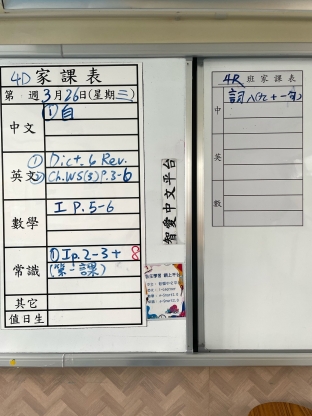 4D 家課表
第 週 3月26日(星期三)
中文
① 自
英文
① Dict. 6 Rev.
② Ch.WS(S) P.3-6
數學
I P.5-6
常識
① Ip.2-3 + 8
(第一課)
其它
值日生
智愛中文平台
4R 班家課表
中
詞八(九+一句)
英
數